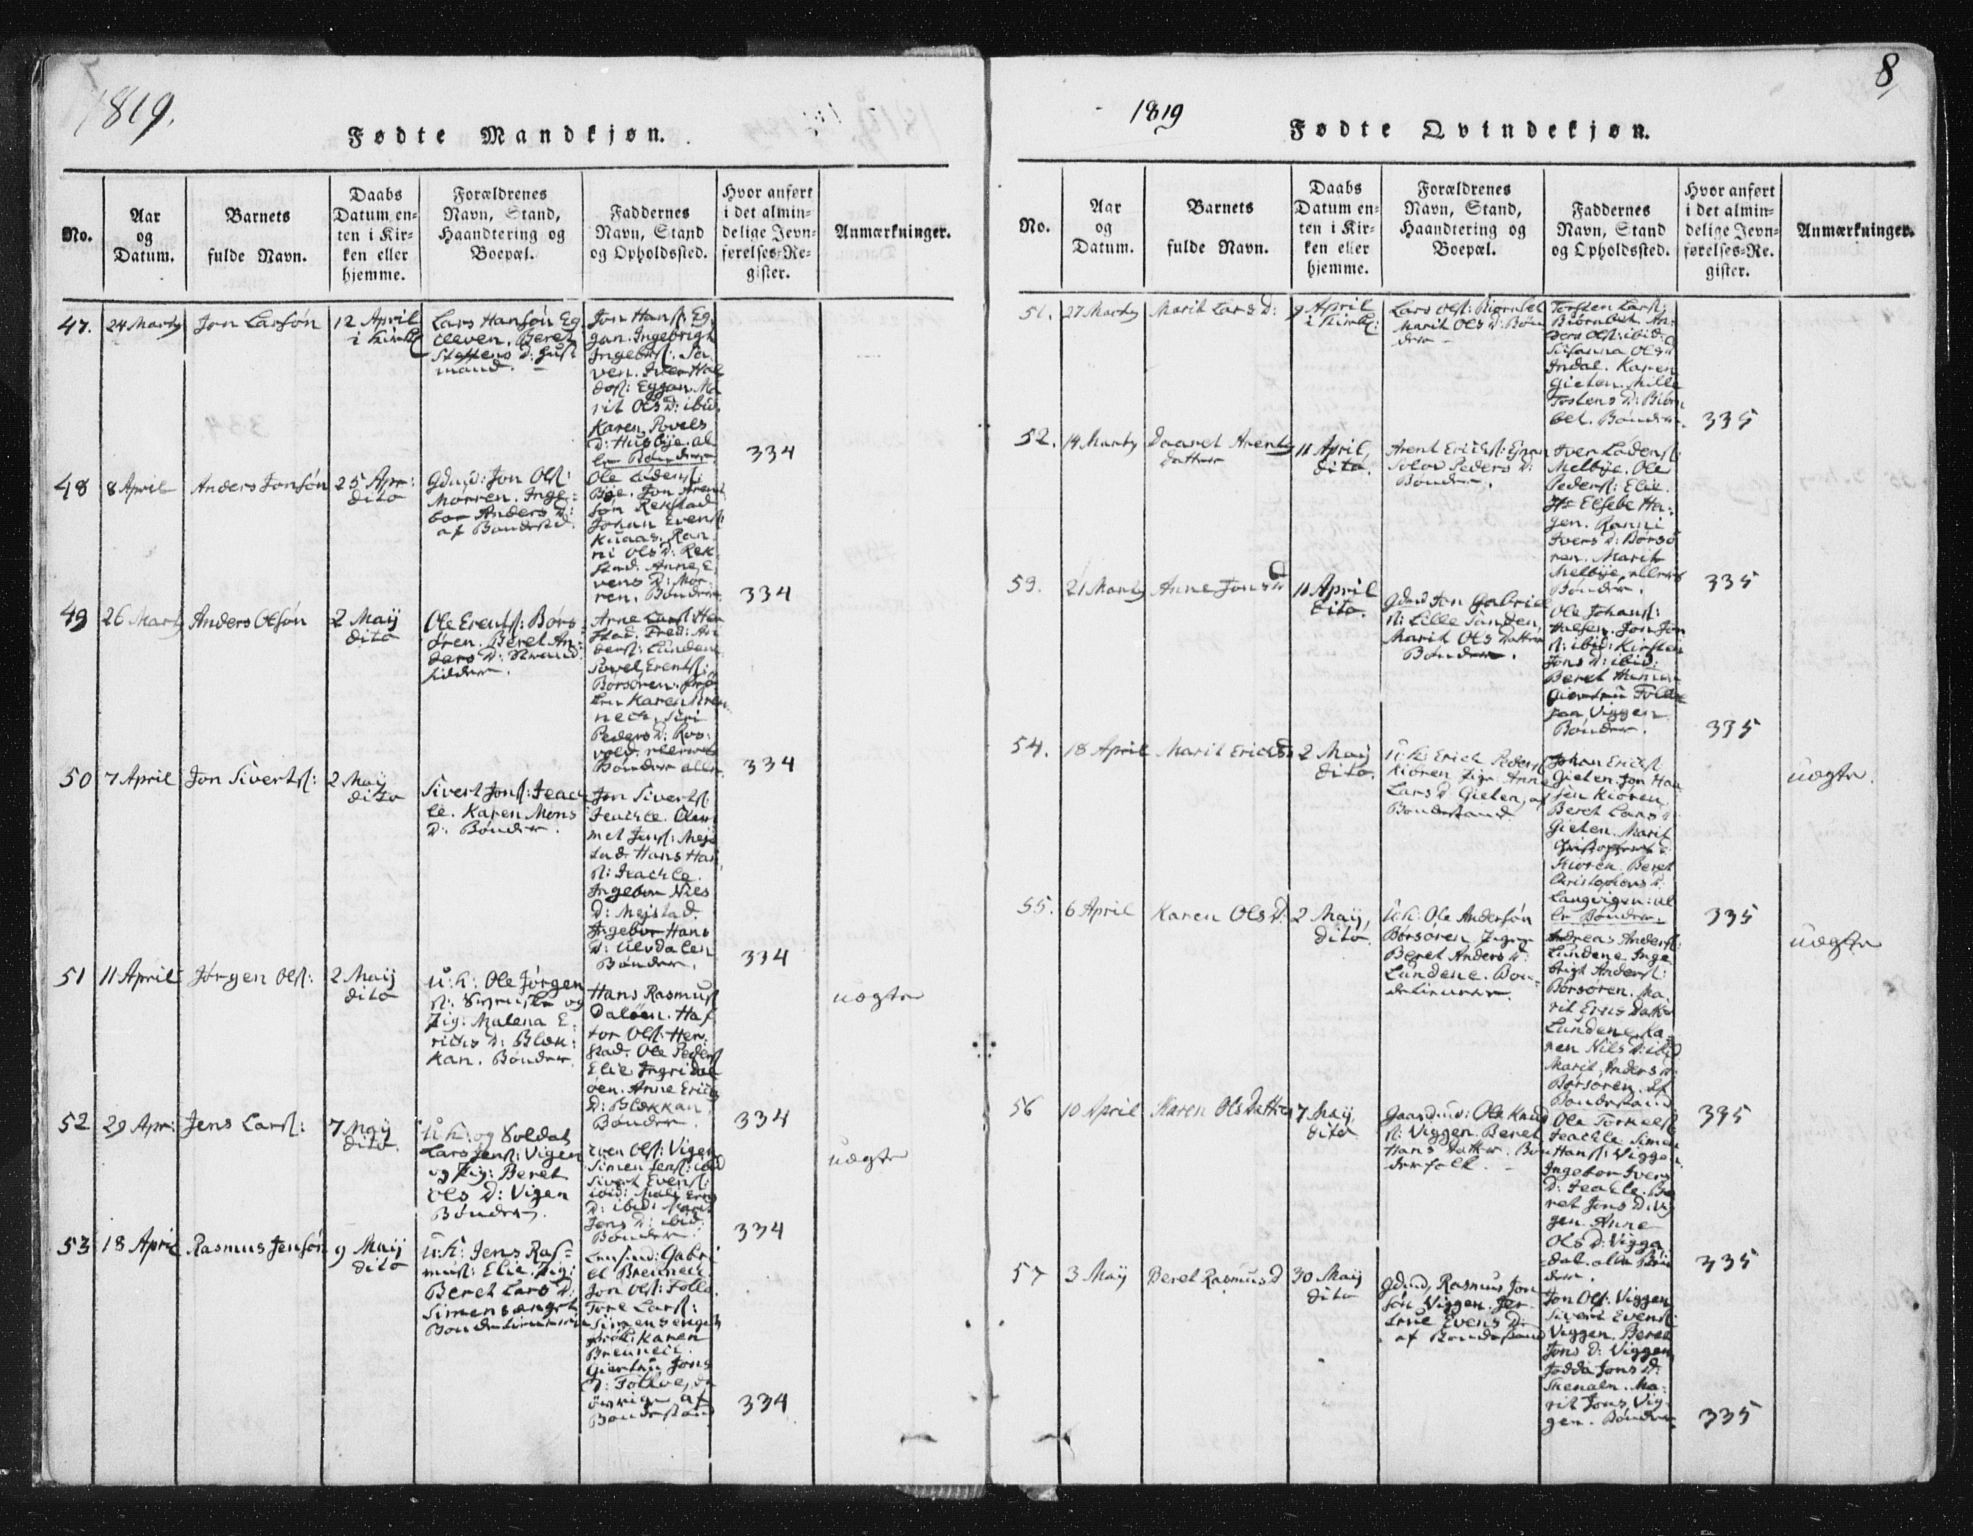 7
1819.
Fødte Mandkjøn.
No.
Aar
og
Datum.
Barnets
fulde Navn.
Daabs
Datum en-
ten i Kir-
ken eller
hjemme.
Forældrenes
Navn, Stand,
Haandtering og
Boepæl.
Faddernes
Navn, Stand
og Opholdssted.
Hvor anført
i det almin-
delige Jevn-
førelses-Re-
gister.
Anmærkninger.
47.
24 Marty
Jon Larsøn
12 April
i Kirk
Lars Hansøn Eg
cleven. Beret
Steffens D: Huus
mand.
Jon Hans: Eg
gan. Ingebrigt
Ingebr: Sa
ven. Iver Hal
dos: Eggan. Ma
rit Ols D: ibid.
Karen Povels
D: Husbye. al
le Bønder
334
48
8 April
Anders Jonsøn
25 Apr:
dito
Gdmd: Jon Ols:
Morren. Inge-
bor Anders D:
af Bondestd.
Ole Lodens:
Bye. Jon Arent
søn Rekstad
Johan Evens:
Kuaas. Ran
ni Ols D: Rek
stad. Anne E
vens D: Mor-
ren. Bønder
334
49
26 Marty
Anders Olsøn
2 Maij
dito
Ole Erents: Børs
øren. Beret An-
ders D: Strand
sidder.
Arne Lars: Her
stad. Fred: An
ders: Lundene
Povel Erents:
Børsøren.
Karen
neck. Siri
Peders D: Ros
vold.
Bønder alle.
334
50
7 April
Jon Siverts:
2 Maij
dito
Sivert Jons: Jeach
le. Karen Mons
D: Bønder.
Jon Siverts:
Jeachle. Clem
met Jens: Mejs
tad. Hans Han
s: Jeachle.
Ingebor Nils
D: Mejstad.
Ingebor Hans
D: Ulvdalen
Bønder.
334
51
11 April
Jørgen Ols:
2 Maij
dito
u: k: Ole Jørgen
s: og
Pig: Malena E
richs D: Blæk-
kan. Bønder
Hans Rasmus
Daløen. Haf
tor Ols: Her
stad. Ole Peders
Elie Ingri Dal
øen. Anne Erichs
D: Blækkan.
Bønder.
334
uægte
52
29 Apr:
Jens Lars:
7 Maij
dito.
u: k: og Soldat
Lars Jens: Vigen
og Pig: Beret
Ols D: Vigen
Bønder.
Even Ols: Vigen
Simen Jens: ibid
Sivert Evens:
ibid: Mali Erns
D: ibid: Marit
Jens D: ibid.
Bønder.
334
uægte
53
18 April
Rasmus Jensøn
9 Maij
dito
u: k: Jens Ras-
mus: Elie. Pig:
Beret Lars D:
Simensenget.
Bonde
Lensmd: Gabri
el Brenneci
Jon Ols: Follo.
Tore Lars:
Simensenget
Karen
Brenneci.
Giertru Jons
D: Follo, de
øvrige af
Bondestand
334
8
1819
Fødte Qvindekjøn.
No.
Aar
og
Datum.
Barnets
fulde Navn.
Daabs
Datum en-
ten i Kir-
ken eller
hjemme.
Forældrenes
Navn, Stand,
Haandtering og
Boepæl.
Faddernes
Navn, Stand
og Opholdssted.
Hvor anført
i det almin-
delige Jevn-
førelses-Re-
gister.
Anmærkninger.
51.
27 Marty
Marit Lars D:
9 April
i Kirk:
Lars Ols: Biørnbet
Marit Ols D: Bøn
der
Torsten Lars:
Biørnbet. An
ders Ols: ibid:
Susanna Ols D
Indal. Karen
Gieten. Mille
Tostens D: Biørn
bet. Bønder.
335
52.
14 Marty
Daaret Arents
datter
11 April,
dito.
Arent Erichs:
Solov Peders D:
Bønder.
Iver Lodens:
Melbye. Ole
Peders: Elie.
Elsebe Ha-
gen. Ranni
Ivers D: Børsø
ren. Marit
Melbye,
Bønder.
335
53.
21 Marty
Anne Jons D
11 April
dito
Gdmd Jon Gabriel
s: Lille Sanden,
Marit Ols datter
Bønder.
Ole Johans:
Halsen. Jon Jon
s: ibid: Kirsten
Jons D: ibid:
Beret
Giertru
Viggen.
Bønder.
335
54.
18 April
Marit Erichs D
2 Maij
dito.
u: k: Erich Peders
Kiøren Pige Anne
Lars D Gieten, af
Bondestand.
Johan Erichs:
Gieten. Jon Han
sen Kiøren,
Beret Lars D
Gieten. Marit
Christophers D
Kiøren. Beret
Christophers D:
Langvigen: al
le Bønder.
335
uægte.
55.
6 April
Karen Ols D.
2 Maij,
dito.
u: k: Ole Andersøn
Børsøren Pigen
Beret Anders D:
Lundene. Bon-
Andreas Anders:
Lundene. Inge
brigt Anders:
Børsøren. Ma
rit Erns datter
Lundene. Ka
ren Nils D: ibid
Marit Anders D:
Børsøren. af
Bondestand
335
uægte
56
10 April
Karen Ols datter
7 Maij
dito
Gaardmd: Ole Knud
s: Viggen. Beret
Hans datter. Bøn
derfolk.
Ole Torkels:
Jeachle Simen
Hans: Viggen.
Ingebor Ivers
D: Jeachle. Be
ret Jons D: Vig
gen. Anne
Ols D: Vigga
dal. alle Bøn
der.
335
57
3 Maij
Beret Rasmus D
30 Maij
dito
Gdmd, Rasmus Jon
søn Viggen. Jer-
true Evens D:
af Bondestand
Jon Ols: Viggen
Sivert Evens:
Viggen. Beret
Jons D: Viggen
Jodda Jons D:
Ma-
rit Jons Vig-
gen. Bønder
335